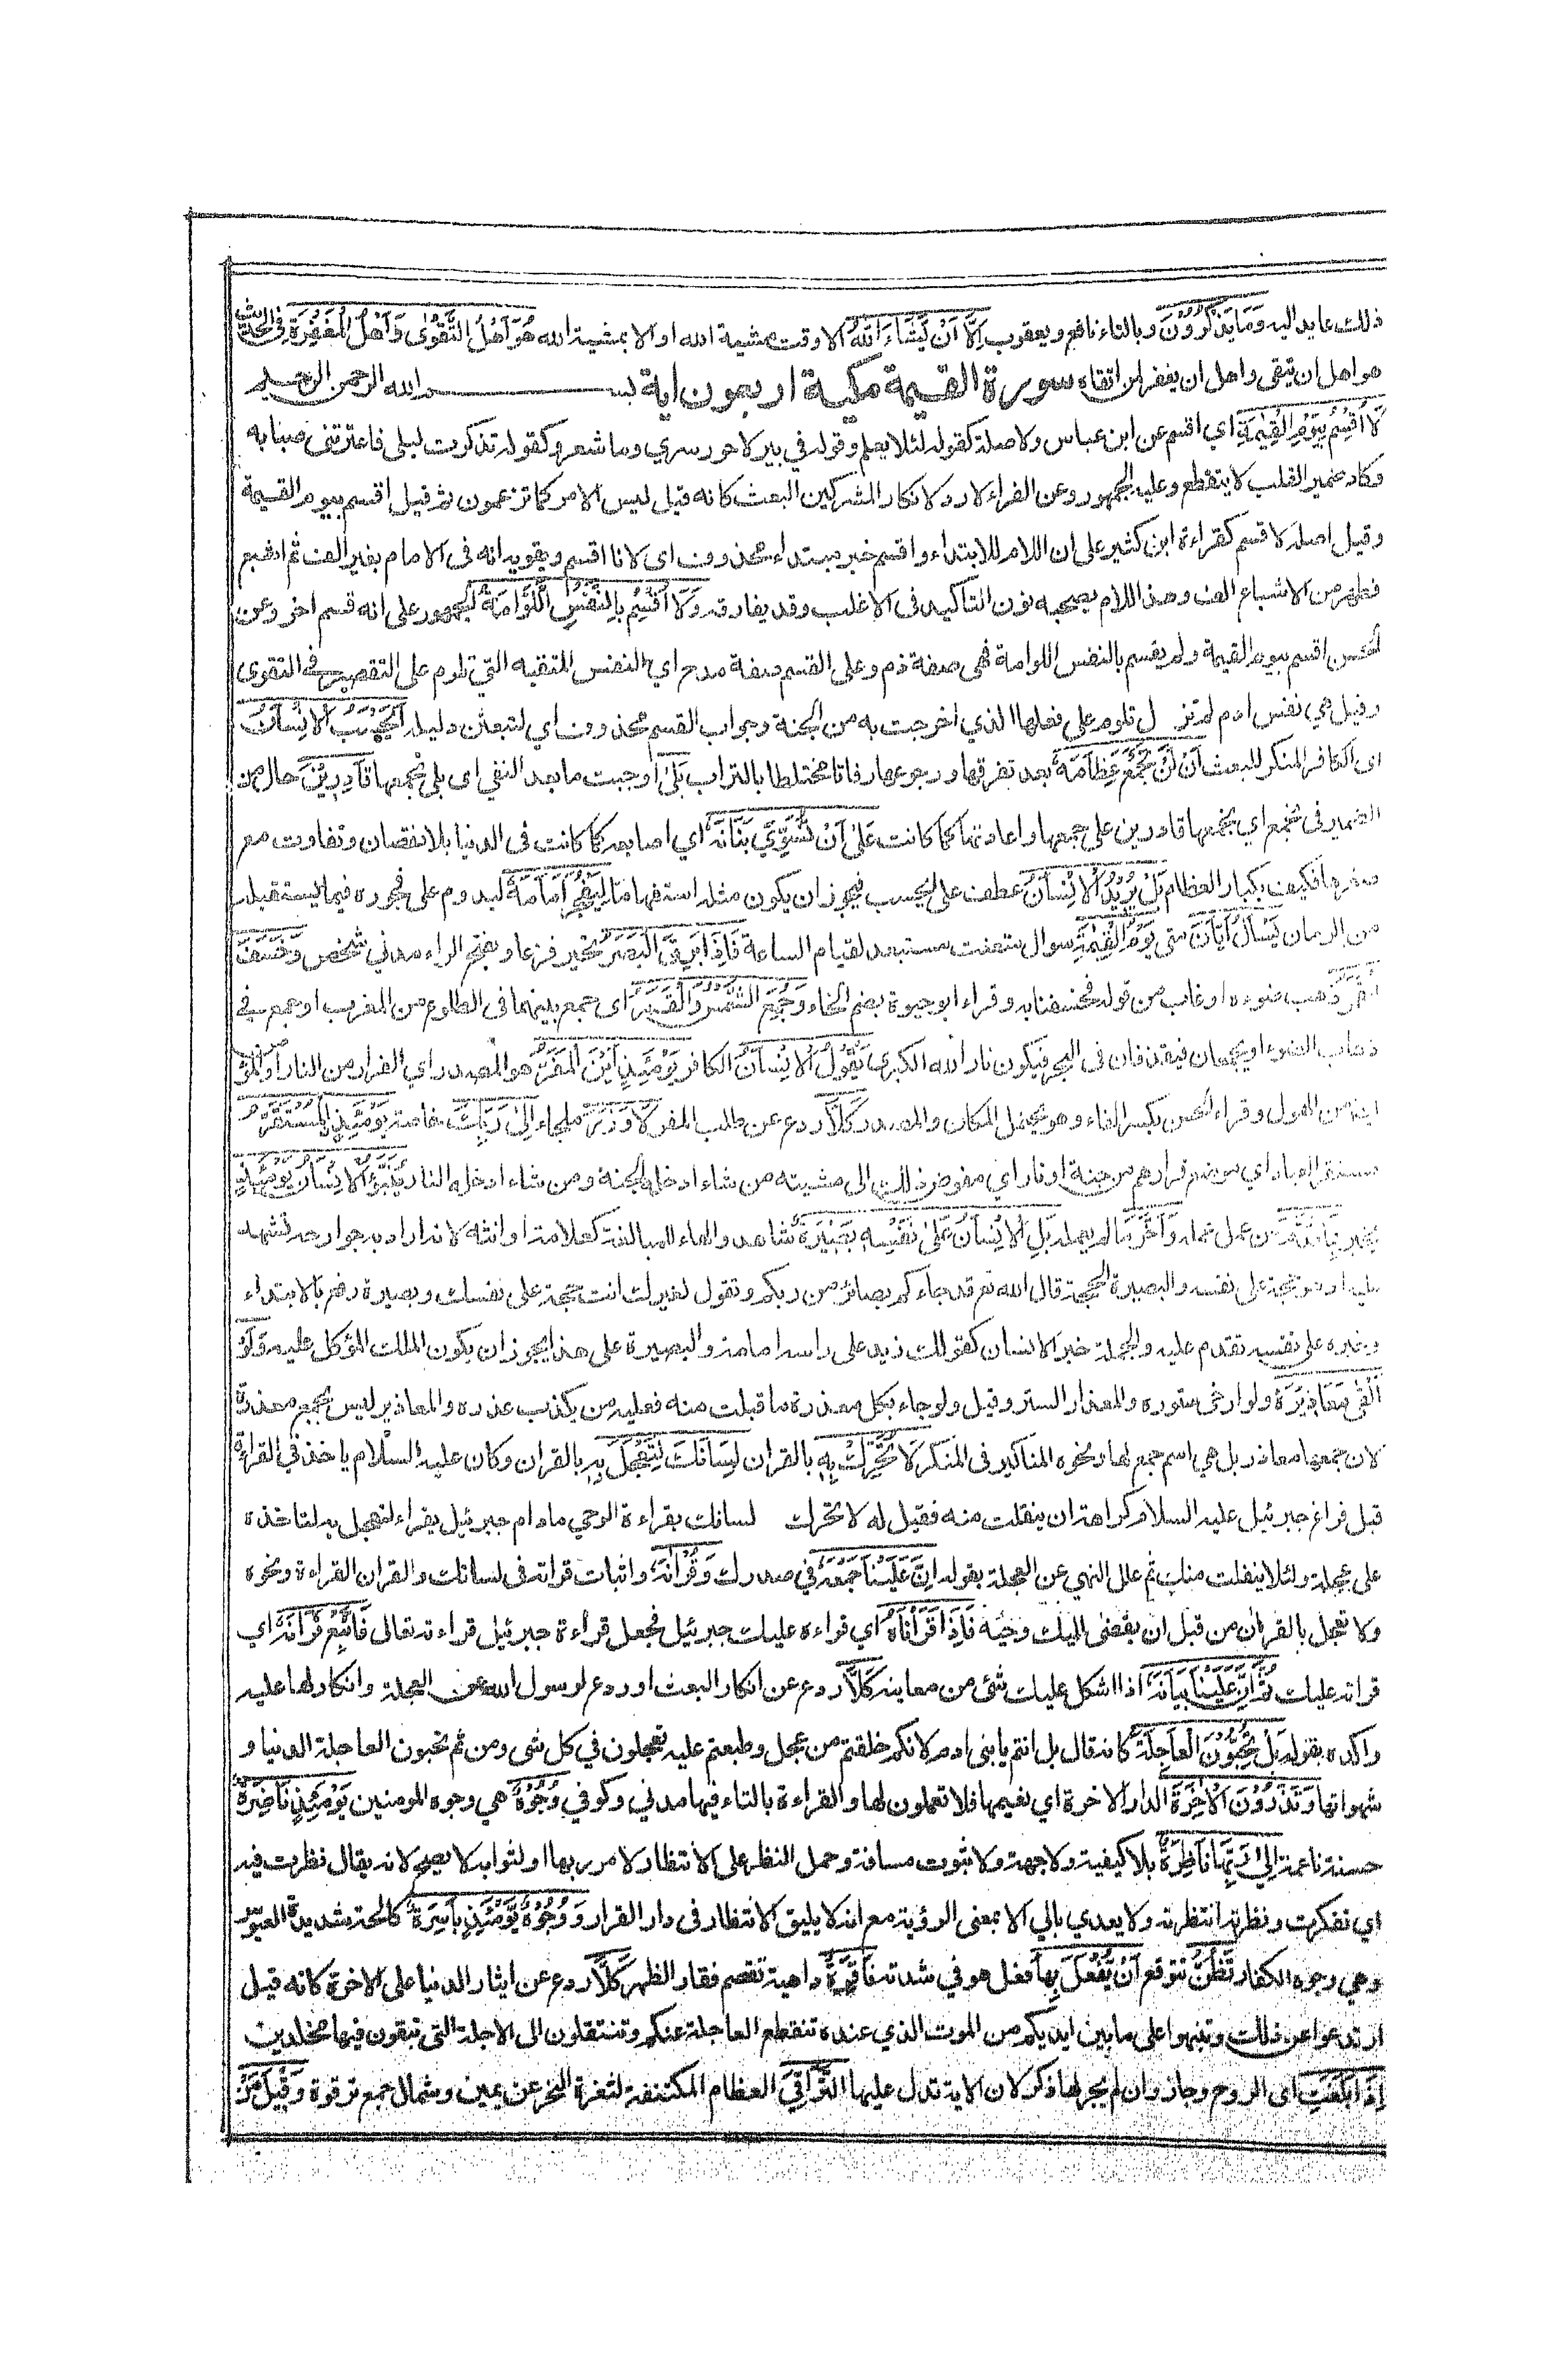 ذلك عايد اليه وَمَا يَذْكُرُوْنَ وبالتاء نافع ويعقوب اِلَّا اَنْ يَّشَاءَ اللّٰهُ الا وقت مشية الله او الا بمشية الله هُوَ اَهْلُ التَّقْوٰى وَاَهْلُ الْمَغْفِرَةِ فى الحديث
هو اهل ان يتقى واهل ان يغفر لمن اتقاه سورة القيمة مكية اربعون اية بسم الله الرحمن الرحيم
لَا اُقْسِمُ بِيَوْمِ الْقِيٰمَةِ اي اقسم عن ابن عباس ولا صلة كقوله لئلا يعلم وقوله في بير لا حور سرى وما شعر وكقوله تذكرت ليلى فاعترتنى صبابه
وكاد ضمير القلب لا يتقطع وعليه الجمهور وعن الفراء لا رد لانكار المشركين البعث كانه قيل ليس الامر كما تزعمون ثم قيل اقسم بيوم القيمة
وقيل اصله لاقسم كقراءة ابن كثير على ان اللام للابتداء واقسم خبر مبتداء محذوف اى لانا اقسم ويقويه انه فى الامام بغير الف ثم اشبع
فظهر من الاشباع الف وهذا اللام يصحبه نون التاكيد فى الاغلب وقد يفارقه وَلَا اُقْسِمُ بِالنَّفْسِ اللَّوَّامَةِ الجمهور على انه قسم اخر وعن
الحسن اقسم بيوم القيمة ولم يقسم بالنفس اللوامة فهى صفة ذم وعلى القسم صفة مدح اي النفس المتقيه التي تلوم على التقصير فى التقوى
وقيل هي نفس ادم لم تزل تلوم على فعلها الذي اخرجت به من الجنة وجواب القسم محذوف اي لتبعثن دليله اَيَحْسَبُ الْاِنْسَانُ
اى الكافر المنكر للبعث اَنْ لَّنْ نَّجْمَعَ عِظَامَهٗ بعد تفرقها ورجوعها رفاتا مختلطا بالتراب بَلٰى اوجبت ما بعد النفي اى بلى نجمعها قَادِرِيْنَ حال من
الضمير فى نجمع اي نجمعها قادرين على جمعها واعادتها كما كانت عَلٰى اَنْ نُّسَوِّيَ بَنَانَهٗ اي اصابعه كما كانت فى الدنيا بلا نقصان وتفاوت مع
صغرها فكيف بكبار العظام بَلْ يُرِيْدُ الْاِنْسَانُ عطف على ايحسب فيجوز ان يكون مثله استفهاما لِيَفْجُرَ اَمَامَهٗ ليدوم على فجوره فيما يستقبله
من الزمان يَسْاَلُ اَيَّانَ متى يَوْمُ الْقِيٰمَةِ سوال متعنت مستبعد لقيام الساعة فَاِذَا بَرِقَ الْبَصَرُ تحير فزعا وبفتح الراء مدني شخص وَخَسَفَ
الْقَمَرُ ذهب ضوءه او غاب من قوله فخسفنا به وقراء ابو حيوة بضم الخاء وَجُمِعَ الشَّمْسُ وَالْقَمَرُ اى جمع بينهما فى الطلوع من المغرب او جمع في
ذهاب الضوء او يجمعان فيقذفان فى البحر فيكون نار الله الكبرى يَقُوْلُ الْاِنْسَانُ الكافر يَوْمَئِذٍ اَيْنَ الْمَفَرُّ هو المصدر اي الفرار من النار او المؤمن
ايضا من الهول وقراء الحسن بكسر الفاء وهو يحتمل المكان والمصدر كَلَّا ردع عن طلب المفر لَا وَزَرَ ملجاء اِلٰى رَبِّكَ خاصة يَوْمَئِذِ الْمُسْتَقَرُّ
مستقر العباد اي موضع قرارهم من جنة او نار اي مفوض ذلك الى مشيته من شاء ادخله الجنة ومن شاء ادخله النار يُنَبَّؤُ الْاِنْسَانُ يَوْمَئِذٍ
يخبر بِمَا قَدَّمَ من عمل عمله وَاَخَّرَ ما لم يعمله بَلِ الْاِنْسَانُ عَلٰى نَفْسِهٖ بَصِيْرَةٌ شاهد والهاء للمبالغة كعلامة او انثه لانه اراد به جوارحه تشهد
عليه او هو حجة على نفسه والبصيرة الحجة قال الله تع قد جاءكم بصائر من ربكم وتقول لغيرك انت حجة على نفسك وبصيرة رفع بالابتداء
وخبره على نفسه تقدم عليه والجملة خبر الانسان كقولك زيد على راسه امامة والبصيرة على هذا يجوز ان يكون الملك المؤكل عليه وَلَوْ
اَلْقٰى مَعَاذِيْرَهٗ ولو ارخى ستوره والمعذار الستر وقيل ولو جاء بكل معذرة ما قبلت منه فعليه من يكذب عذره والمعاذير ليس بجمع معذرة
لان جمعها معاذر بل هي اسم جمع لها ونحوه المناكير فى المنكر لَا تُحَرِّكْ بِهٖ بالقران لِسَانَكَ لِتَعْجَلَ بِهٖ بالقران وكان عليه السلام ياخذ في القراءة
قبل فراغ جبرئيل عليه السلام كراهة ان ينفلت منه فقيل له لا تحرك لسانك بقراءة الوحي مادام جبرئيل يقراء لتعجل به لتاخذه
على عجلة ولئلا ينفلت منك ثم علل النهي عن العجلة بقوله اِنَّ عَلَيْنَا جَمْعَهٗ في صدرك وَقُرْاٰنَهٗ واثبات قراته فى لسانك والقران القراءة ونحوه
ولا تعجل بالقران من قبل ان يقضى اليك وحيه فَاِذَا قَرَاْنَاهُ اي قراءه عليك جبرئيل فجعل قراءة جبرئيل قراءته تعالى فَاتَّبِعْ قُرْاٰنَهٗ اي
قراته عليك ثُمَّ اِنَّ عَلَيْنَا بَيَانَهٗ اذا اشكل عليك شئ من معانيه كَلَّا ردع عن انكار البعث او ردع لرسول الله عن العجلة وانكار لها عليه
واكده بقوله بَلْ تُحِبُّوْنَ الْعَاجِلَةَ كانه قال بل انتم يا بنى ادم لانكم خلقتم من عجل وطبعتم عليه تعجلون في كل شى ومن ثم تحبون العاجلة الدنيا و
شهواتها وَتَذَرُوْنَ الْاٰخِرَةَ الدار الاخرة اي نعيمها فلا تعملون لها والقراءة بالتاء فيهما مدني وكوفي وُجُوْهٌ هي وجوه المومنين يَوْمَئِذٍ نَّاضِرَةٌ
حسنة ناعمة اِلٰى رَبِّهَا نَاظِرَةٌ بلا كيفية ولا جهة ولا ثبوت مسافة وحمل النظر على الانتظار لامر ربها او لثوابه لا يصح لانه يقال نظرت فيه
اي تفكرت ونظرته انتظرته ولا يعدي بالي الا بمعنى الرؤية مع انه لا يليق الانتظار فى دار القرار وَوُجُوْهٌ يَّوْمَئِذٍ بَاسِرَةٌ كالحة شديدة العبوس
وهي وجوه الكفار تَظُنُّ تتوقع اَنْ يُّفْعَلَ بِهَا فعل هو في شدته فَاقِرَةٌ داهية تقصم فقار الظهر كَلَّا ردع عن ايثار الدنيا على الاخرة كانه قيل
ارتدعوا عن ذلك وتنبهوا على ما بين ايديكم من الموت الذي عنده تنقطع العاجلة عنكم وتنتقلون الى الاجلة التى تبقون فيها مخلدين
اِذَا بَلَغَتِ اى الروح وجاز وان لم يجر لها ذكر لان الاية تدل عليها التَّرَاقِيَ العظام المكتنفة لثغرة النحر عن يمين وشمال جمع ترقوة وَقِيْلَ مَنْ